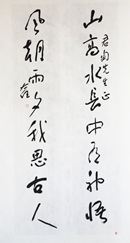 山高水長中有神悟
君匋先生正
風朝雨夕我思古人